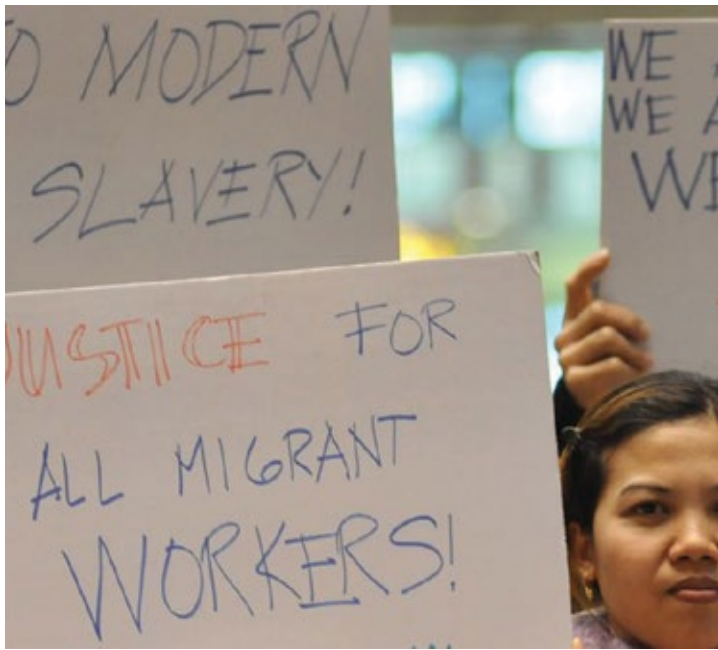 O MODERN
SLAVERY!
JUSTICE FOR
ALL MIGRANT
WORKERS!
WE
WE A
WE